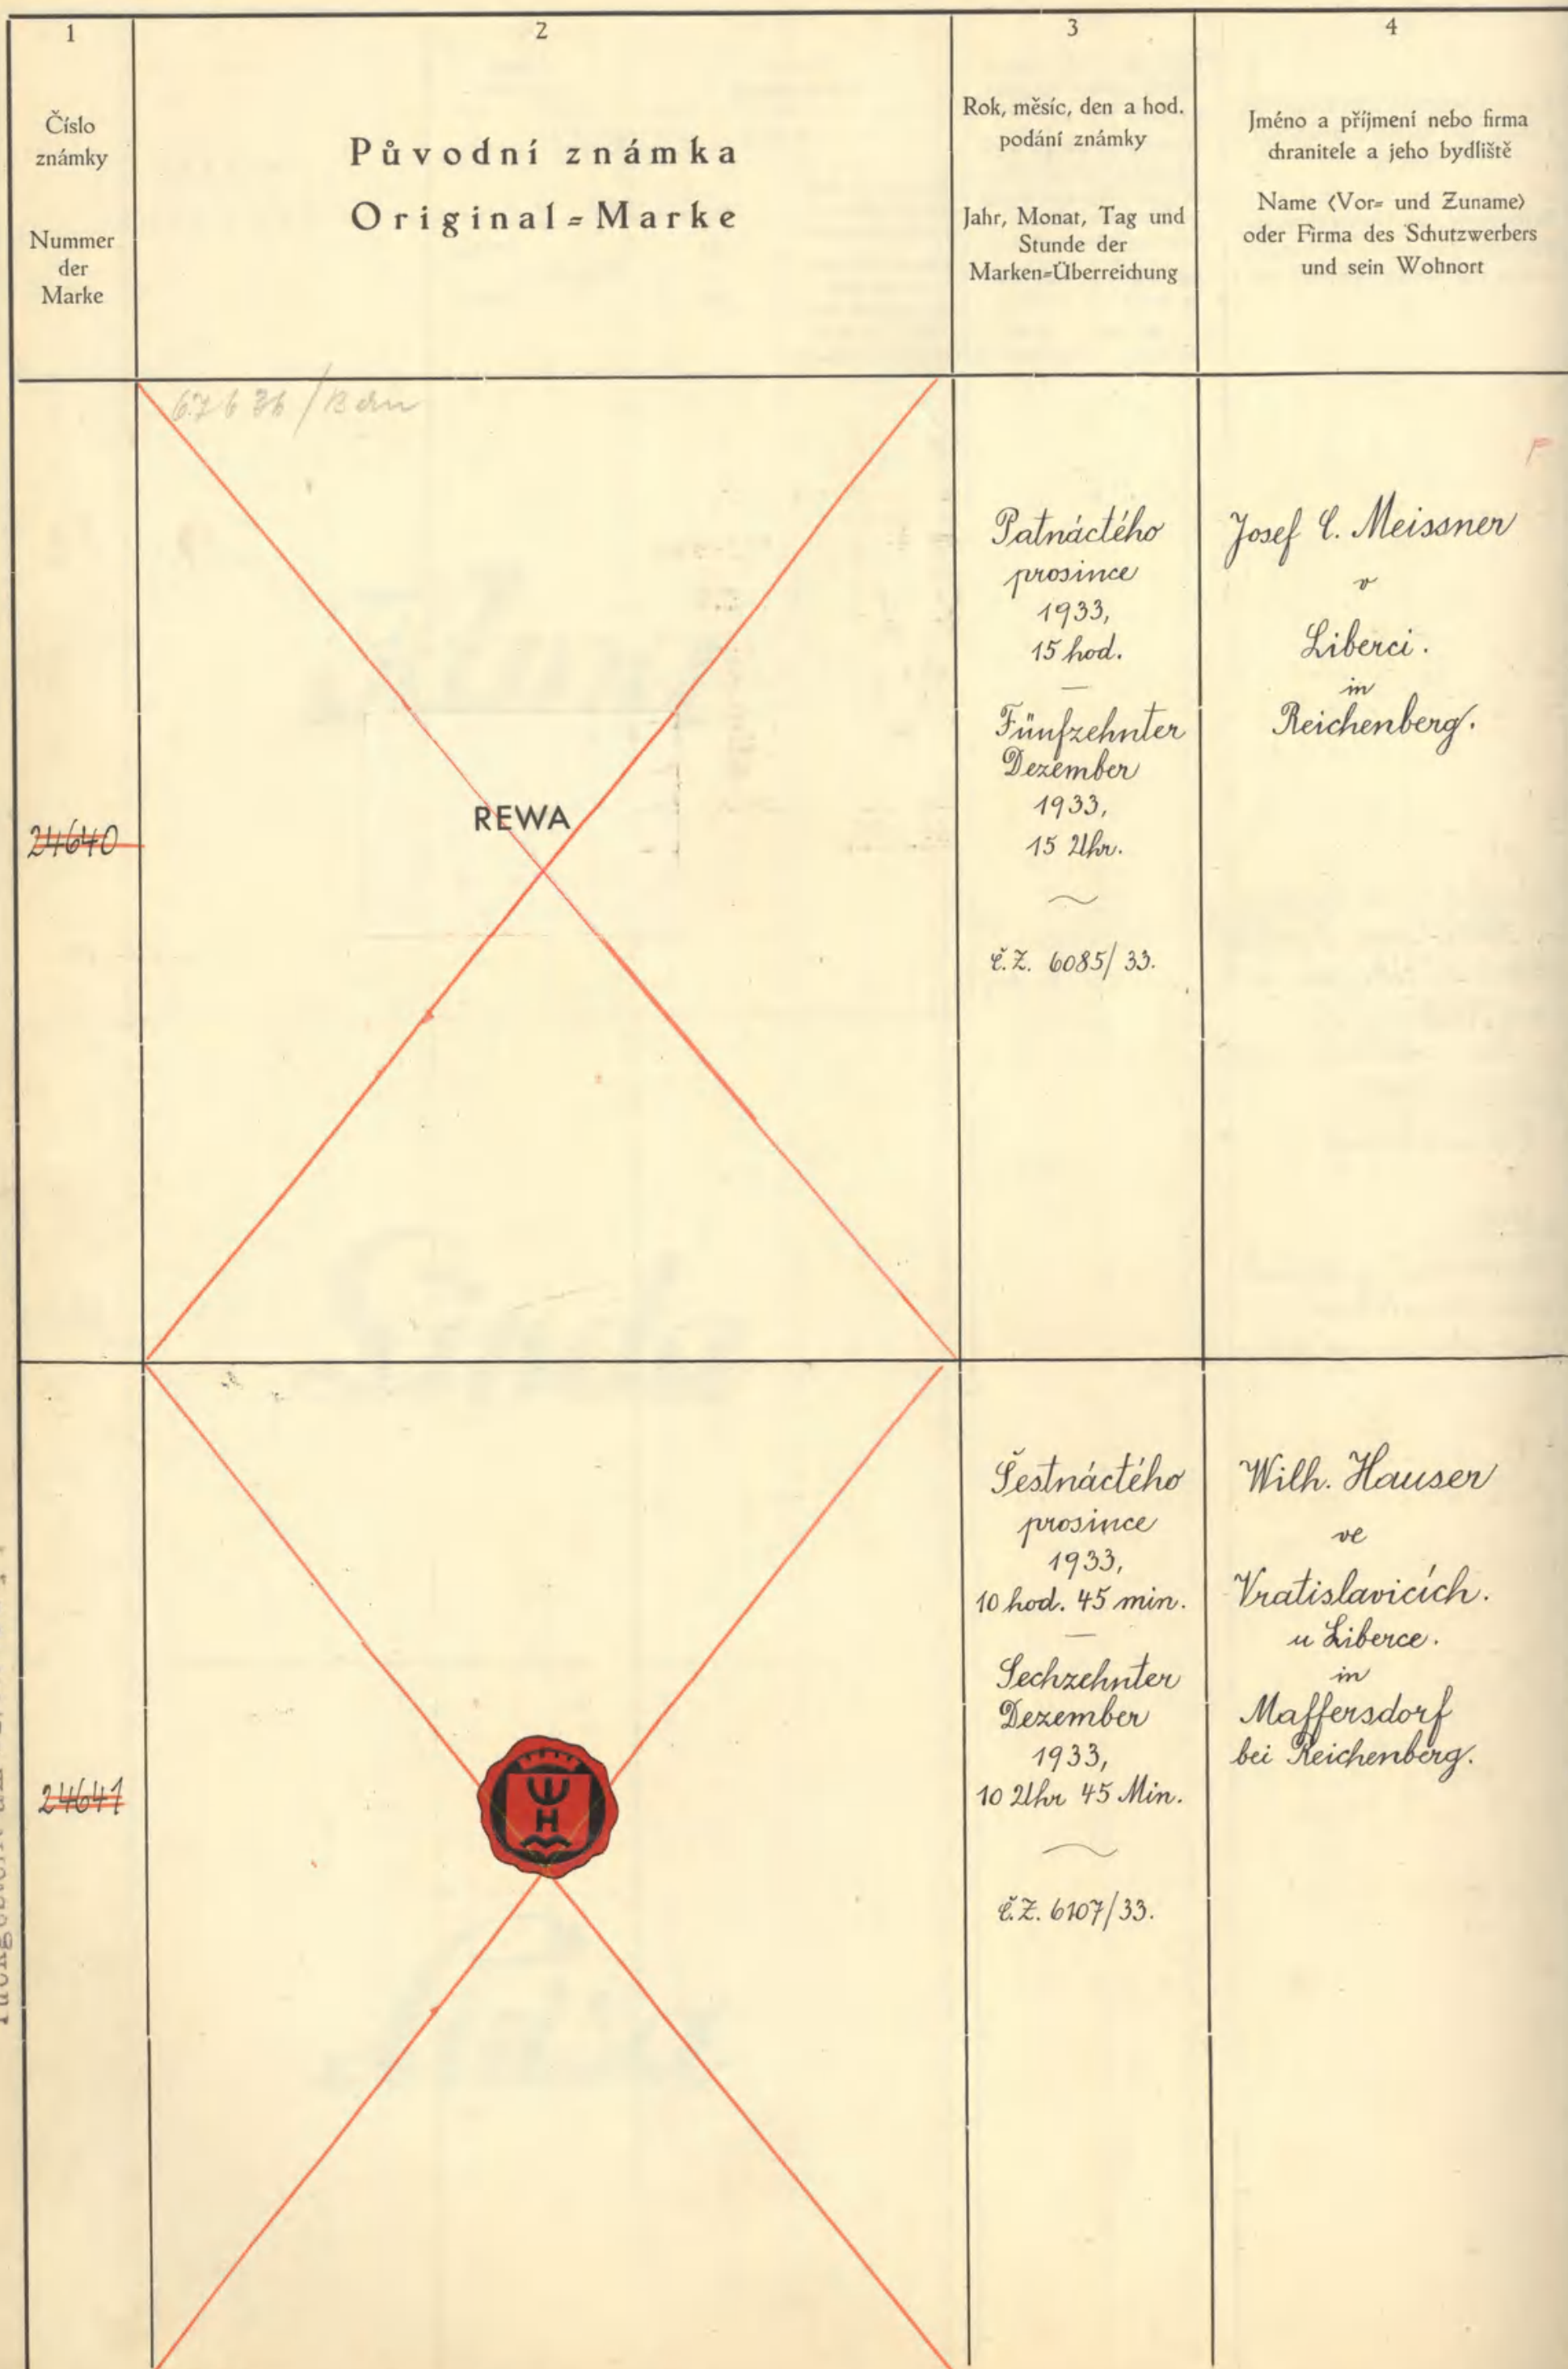 1
Číslo
známky
Nummer
der
Marke
2
Původní známka
Original=Marke
3
Rok, měsíc, den a hod.
podání známky
Jahr, Monat, Tag und
Stunde der
Marken=Überreichung
4
Jméno a příjmení nebo firma
chranitele a jeho bydliště
Name (Vor= und Zuname)
oder Firma des Schutzwerbers
und sein Wohnort
67636/Bern
24640
REWA
Patnáctého
prosince
1933,
15 hod.
—
Fünfzehnter
Dezember
1933,
15 Uhr.
č.Z. 6085/33.
Josef C. Meissner
v
Liberci.
in
Reichenberg.
24641
H
Šestnáctého
prosince
1933,
10 hod. 45 min.
—
Sechzehnter
Dezember
1933,
10 Uhr 45 Min.
č.Z. 6107/33.
Wilh. Hauser
ve
Vratislavicích.
u Liberce.
in
Maffersdorf
bei Reichenberg.